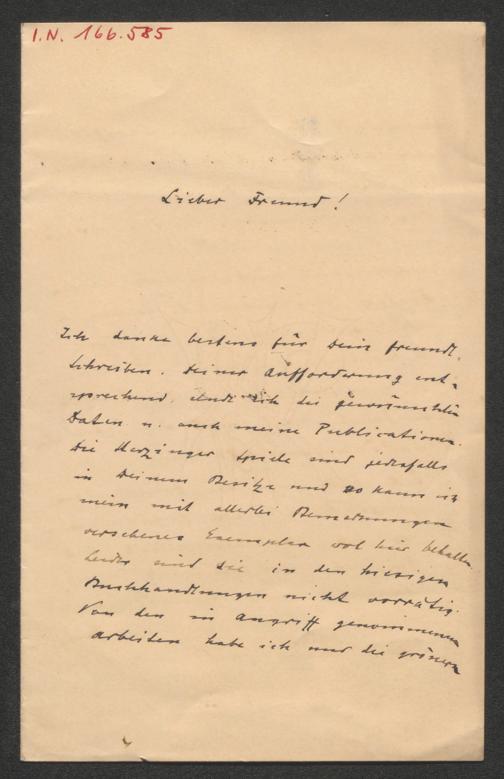 I.N. 166.585
Lieber Freund!
Ich danke bestens für Dein freundl.
Schreiben. Deiner Aufforderung ent-
sprechend, sende ich die gewünschten
Daten u. auch meine Publicationen.
Die Sterzinger Spiele sind jedenfalls
in Deinem Besitze und so kann ich
mein mit allerlei Bemerkungen
versehenes Exemplar wol hier behalten.
Leider sind sie in den hiesigen
Buchhandlungen nicht vorrätig.
Von den in Angriff genommenen
Arbeiten habe ich nur die grösern